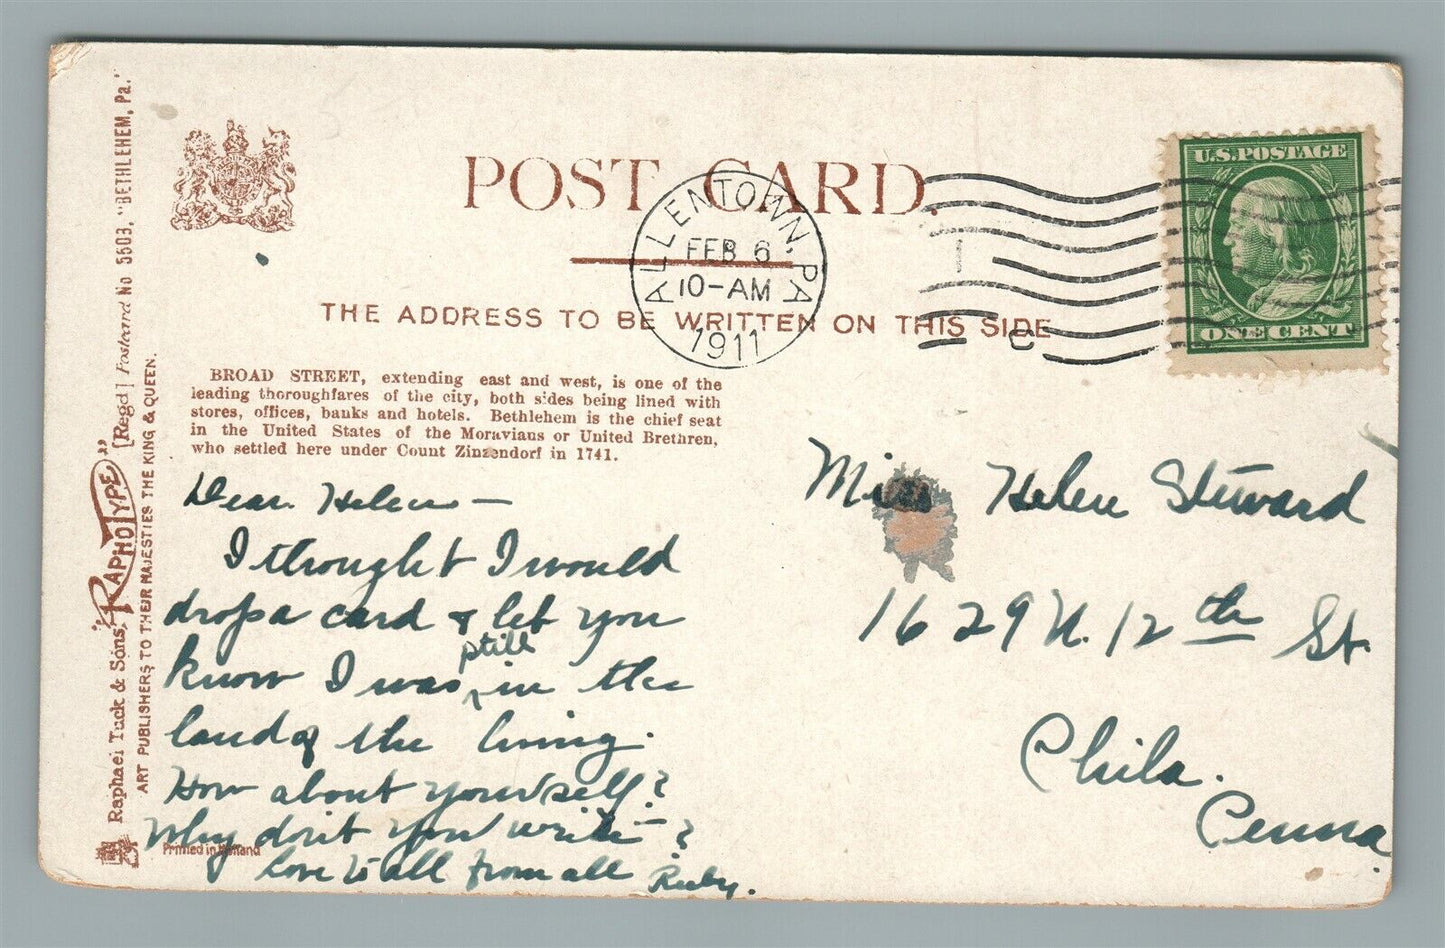 POST CARD.
ALLENTOWN, PA
FEB 6
10-AM
1911
U.S. POSTAGE
ONE CENT
THE ADDRESS TO BE WRITTEN ON THIS SIDE
BROAD STREET, extending east and west, is one of the
leading thoroughfares of the city, both sides being lined with
stores, offices, banks and hotels. Bethlehem is the chief seat
in the United States of the Moravians or United Brethren,
who settled here under Count Zinzendorf in 1741.
Dear Helen —
I thought I would
drop a card & let you
know I was still in the
land of the living.
How about yourself?
Why don't you write?
Love to all from all Ruby.
Miss Helen Steward
1629 N. 12th St.
Phila.
Penna
Raphael Tuck & Sons' "RAPHOTYPE" [Regd] Postcard No 5503. "BETHLEHEM, Pa."
ART PUBLISHERS TO THEIR MAJESTIES THE KING & QUEEN.
Printed in Holland